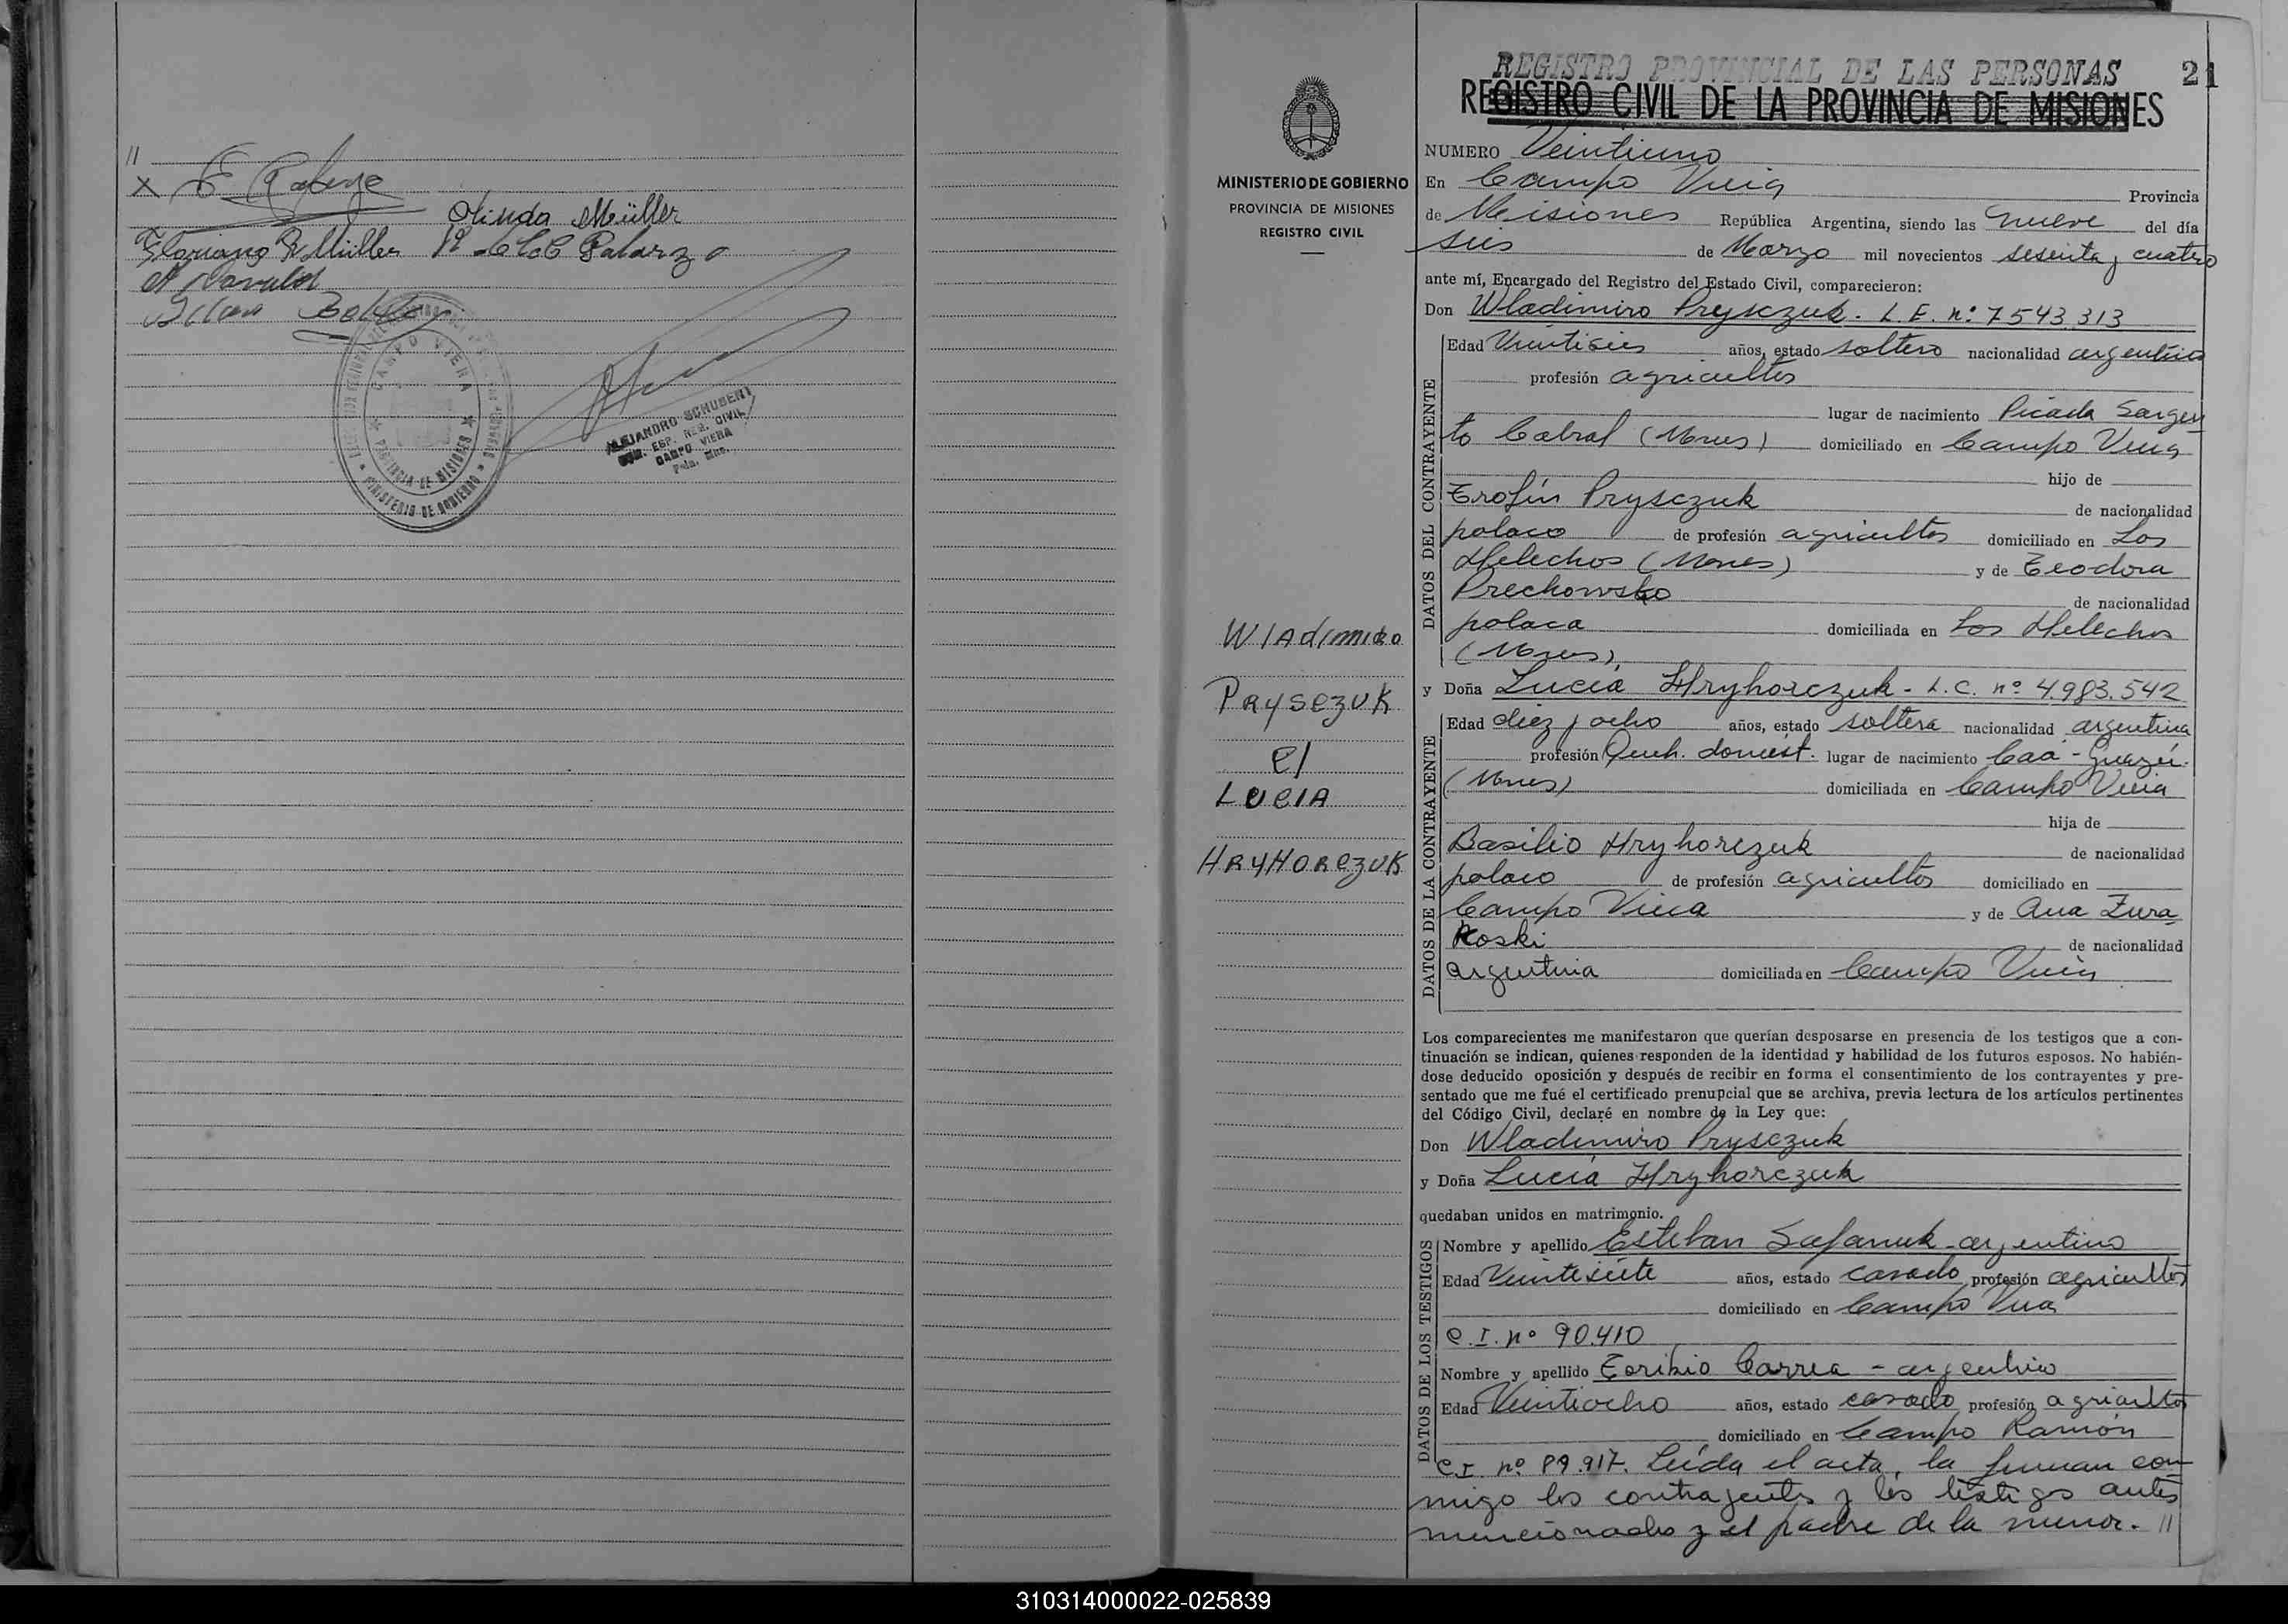 //
x
Olinda Müller
Floriano R Müller
CAMPO VIERA
PROVINCIA DE MISIONES
MINISTERIO DE GOBIERNO
ALEJANDRO SCHUBERT
REG. CIVIL
CAMPO VIERA
Pcia. Mns.
MINISTERIO DE GOBIERNO
PROVINCIA DE MISIONES
REGISTRO CIVIL
Wladimiro
PRYSCZUK
c/
LUCIA
HRYHORCZUK
REGISTRO PROVINCIAL DE LAS PERSONAS 21
REGISTRO CIVIL DE LA PROVINCIA DE MISIONES
NUMERO Veintiuno
En Campo Viera Provincia
de Misiones República Argentina, siendo las nueve del día
seis de Marzo mil novecientos sesenta y cuatro
ante mí, Encargado del Registro del Estado Civil, comparecieron:
Don Wladimiro Prysczuk. L.E. nº 7543313
DATOS DEL CONTRAYENTE
Edad Veintiseis años, estado soltero nacionalidad argentina
profesión agricultor
lugar de nacimiento Picada Sargen
to Cabral (Mnes) domiciliado en Campo Viera
hijo de
Trofín Prysczuk de nacionalidad
polaco de profesión agricultor domiciliado en Los
Helechos (Mnes) y de Teodora
Prechowsko de nacionalidad
polaca domiciliada en Los Helechos
(Mnes)
y Doña Lucía Hryhorczuk - L.C. nº 4.983.542
DATOS DE LA CONTRAYENTE
Edad diez y ocho años, estado soltera nacionalidad argentina
profesión Queh. domést. lugar de nacimiento Caá-Guazú.
(Mnes) domiciliada en Campo Viera
hija de
Basilio Hryhorczuk de nacionalidad
polaco de profesión agricultor domiciliado en
Campo Viera y de Ana Zura
Koski de nacionalidad
argentina domiciliada en Campo Viera
Los comparecientes me manifestaron que querían desposarse en presencia de los testigos que a con-
tinuación se indican, quienes responden de la identidad y habilidad de los futuros esposos. No habién-
dose deducido oposición y después de recibir en forma el consentimiento de los contrayentes y pre-
sentado que me fué el certificado prenupcial que se archiva, previa lectura de los artículos pertinentes
del Código Civil, declaré en nombre de la Ley que:
Don Wladimiro Prysczuk
y Doña Lucía Hryhorczuk
quedaban unidos en matrimonio.
DATOS DE LOS TESTIGOS
Nombre y apellido Esteban Safaniuk - argentino
Edad Veintisiete años, estado casado profesión agricultor
domiciliado en Campo Viera
C.I. nº 90.410
Nombre y apellido Toribio Correa - argentino
Edad Veintiocho años, estado casado profesión agricultor
domiciliado en Campo Ramón
C.I. nº 89.917. Leída el acta, la firman con
migo los contrayentes y los testigos antes
mencionados y el padre de la menor. //
310314000022-025839